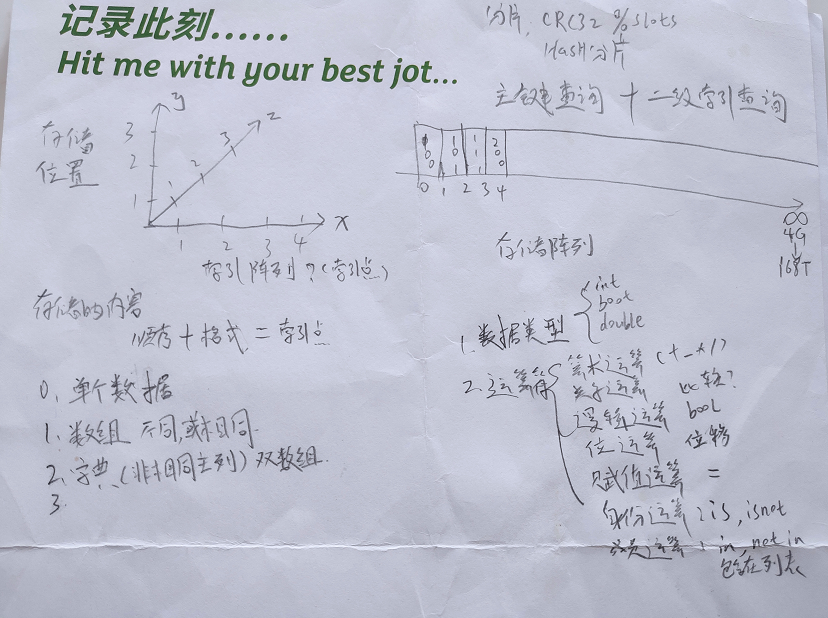 记录此刻......
Hit me with your best jot...
分片, CRC32 % slots
Hash分片
主键查询 + 二级索引查询
y
z
存储
位置
3
2
1
1
2
3
x
1 2 3 4
索引阵列?(索引点)
0 1 2 3 4
∞
4G
168T
存储阵列
存储的内容
顺存 + 格式 = 索引点
0. 单个数据
1. 数组 不同,或相同.
2. 字典 (非相同主列) 双数组.
3.
1. 数据类型
int
boot
double
2. 运算符
算术运算 (+-*/)
关系运算 比较?
逻辑运算 bool
位运算 位移
赋值运算 =
身份运算: is, isnot
成员运算: in, net in
包含在列表